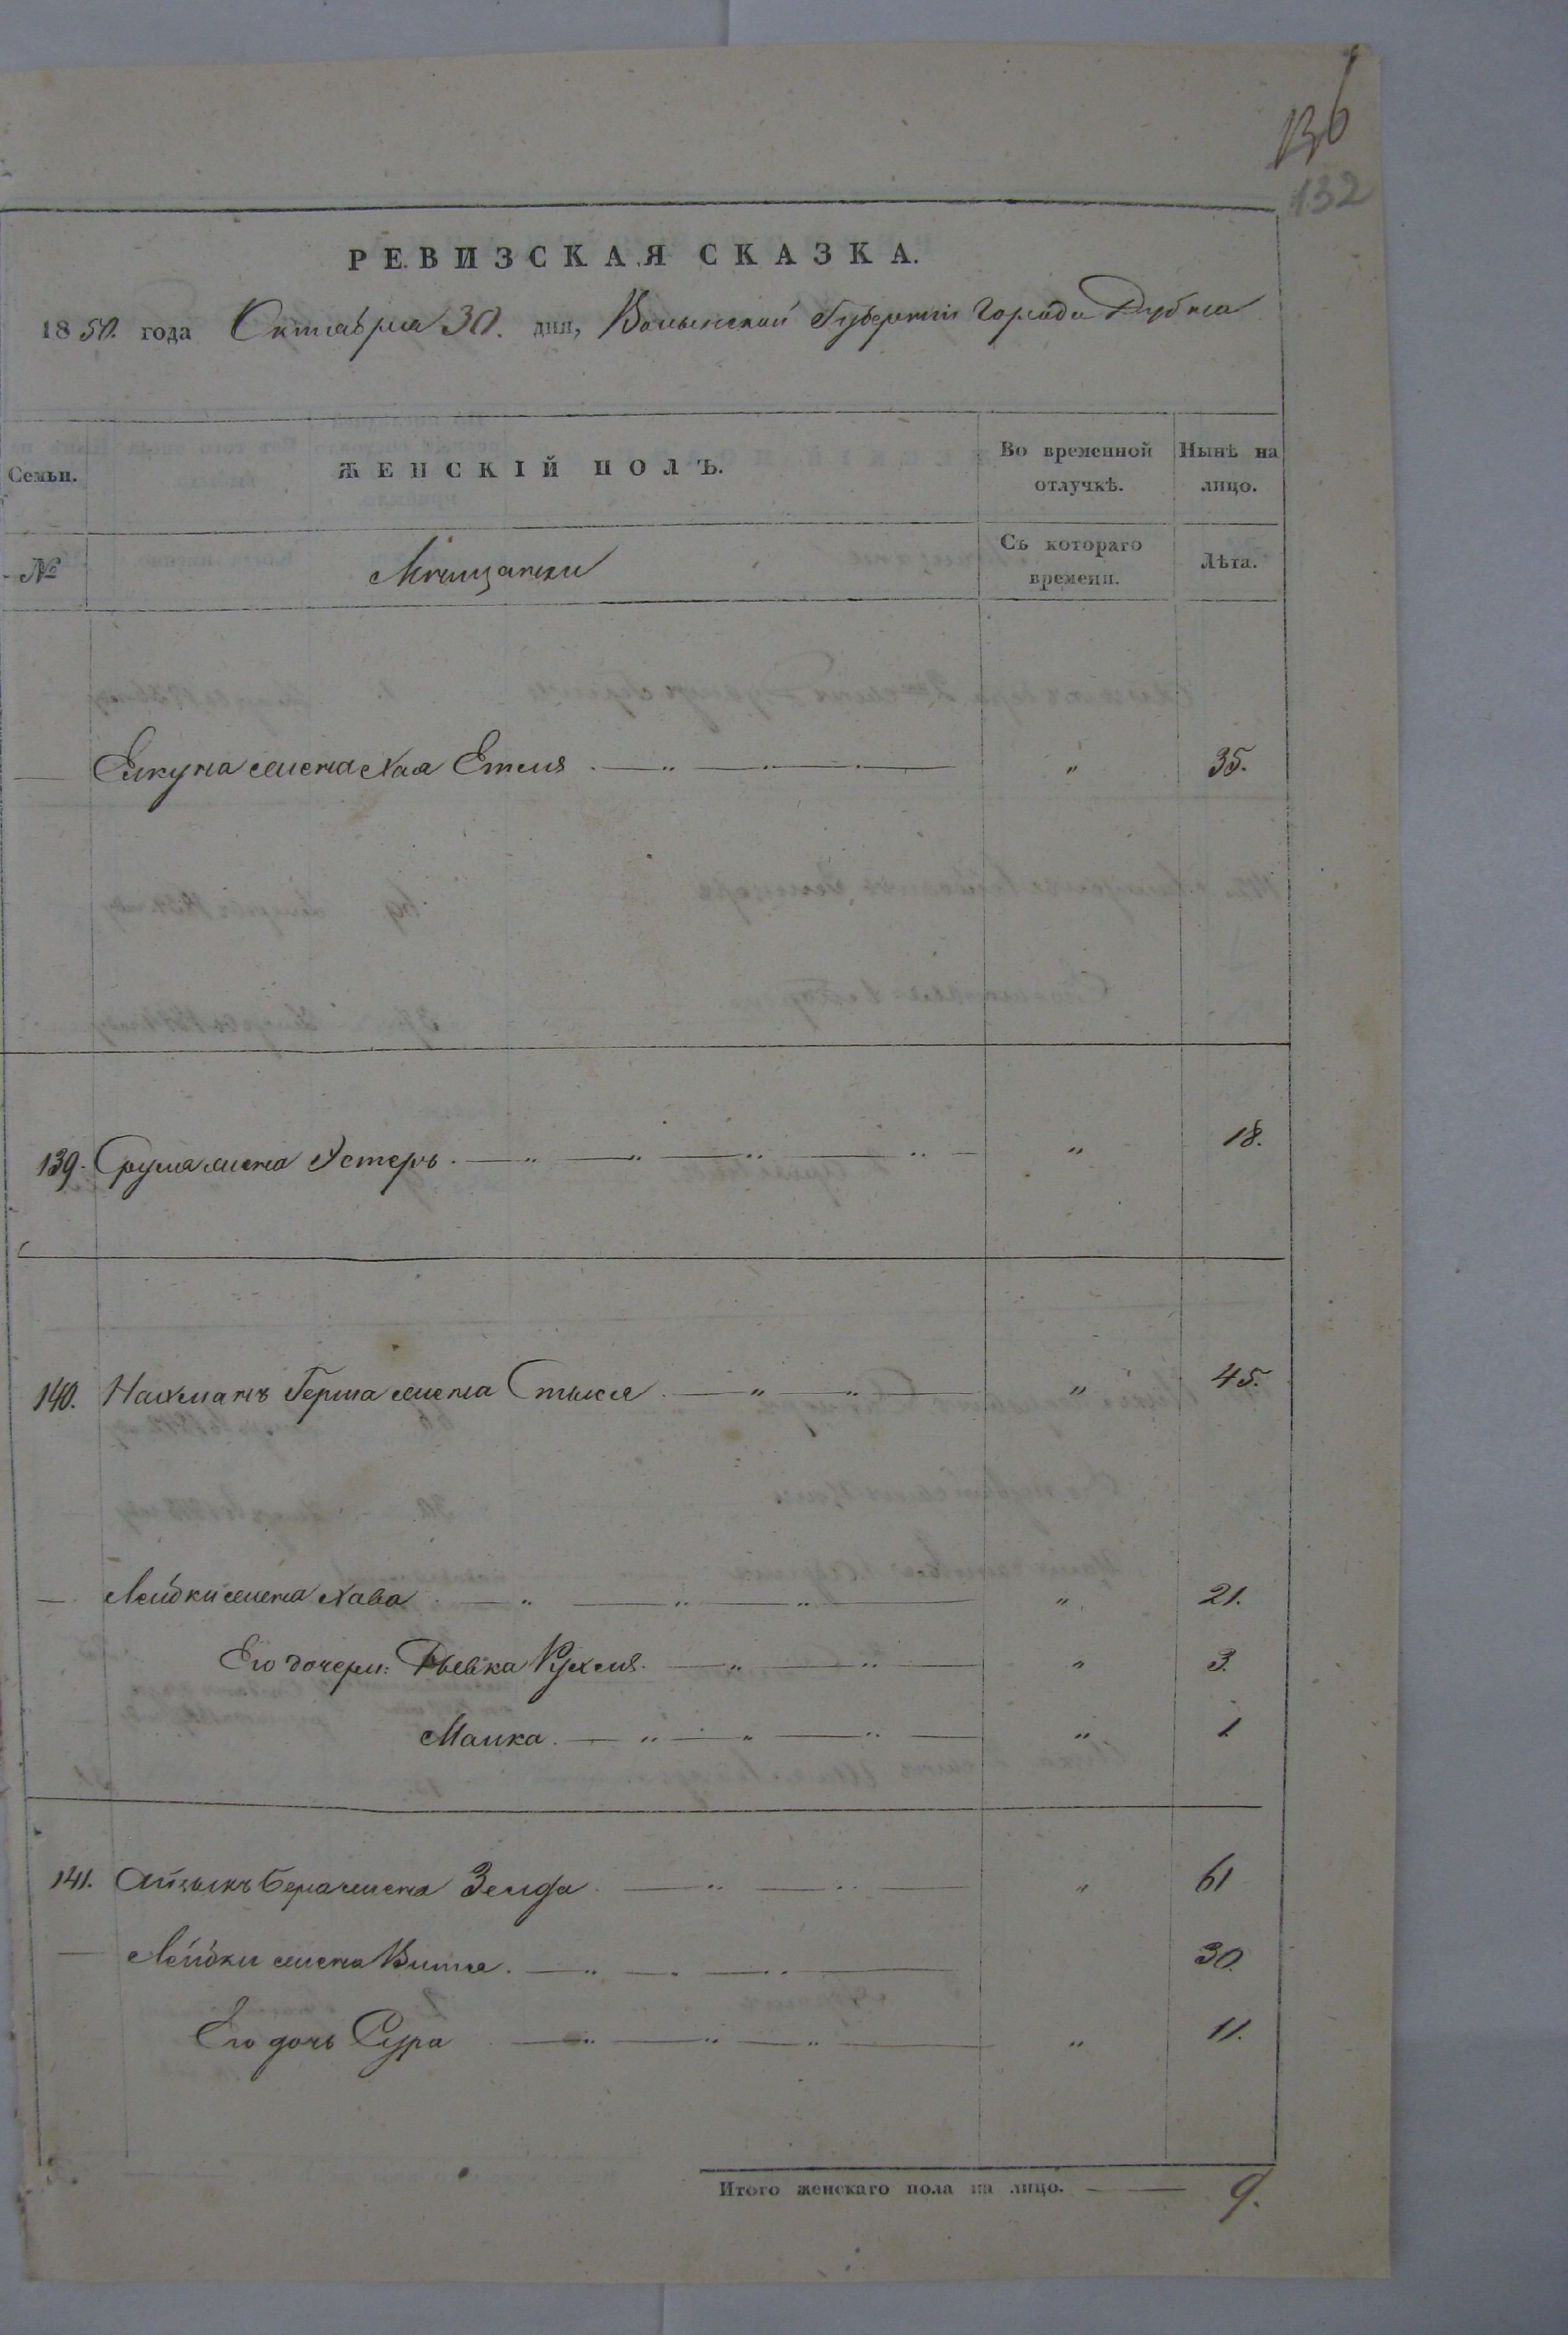 136
132
РЕВИЗСКАЯ СКАЗКА.
1850. года Октября 30. дня, Волынской Губернии Города Дубна
Семьи. ЖЕНСКІЙ ПОЛЪ. Во временной отлучкѣ. Нынѣ на лицо.
№ Мещанки Съ котораго времени. Лѣта.
— Елкуна жена Хая Етля " 35.
139. Сруля жена Эстеръ " 18.
140. Нахманъ Герша жена Стыся " 45.
— Лейбки жена Хава " 21.
Его дочери: Ривка Рухля " 3.
Малка " 1
141. Айзыкъ Бера жена Зельда " 61
— Лейбки жена Витя 30.
Его дочь Сура " 11.
Итого женскаго пола на лицо. 9.